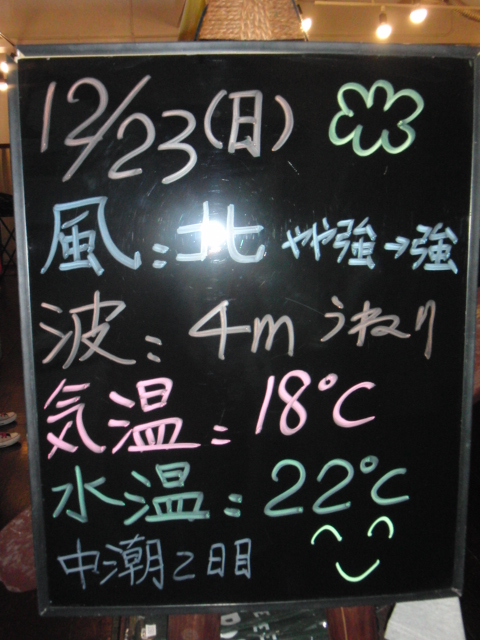 12/23(日)
風:北 やや強→強
波:4m うねり
気温:18℃
水温:22℃
中潮2日目